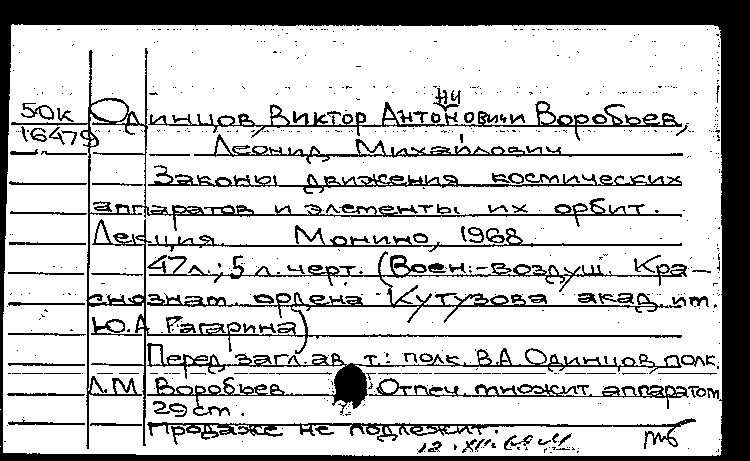 ни
50к Одинцов, Виктор Антонович и Воробьев,
16479 Леонид Михайлович
Законы движения космических
аппаратов и элементы их орбит.
Лекция. Монино, 1968.
47л.; 5 л. черт. (Воен.-воздуш. Кра-
снознам. ордена Кутузова акад. им.
Ю.А Гагарина)
Перед загл. авт.: полк. В.А Одинцов, полк.
Л.М. Воробьев. Отпеч. множит. аппаратом
29 см.
Продаже не подлежит.
12.XII.69